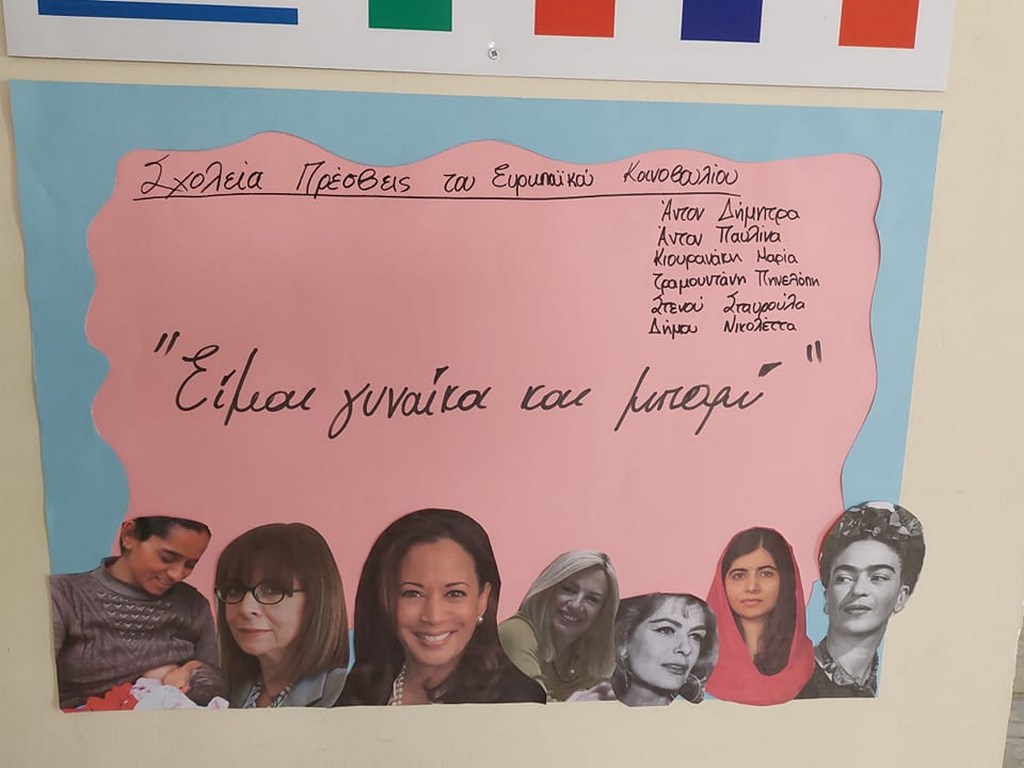 Σχολεία Πρέσβεις του Ευρωπαϊκού Κοινοβουλίου
Άντον Δήμητρα
Άντον Παυλίνα
Κιουρανάκη Μαρία
Τραμουντάνη Πηνελόπη
Στενού Σταυρούλα
Δήμου Νικολέττα
"Είμαι γυναίκα και μπορώ"